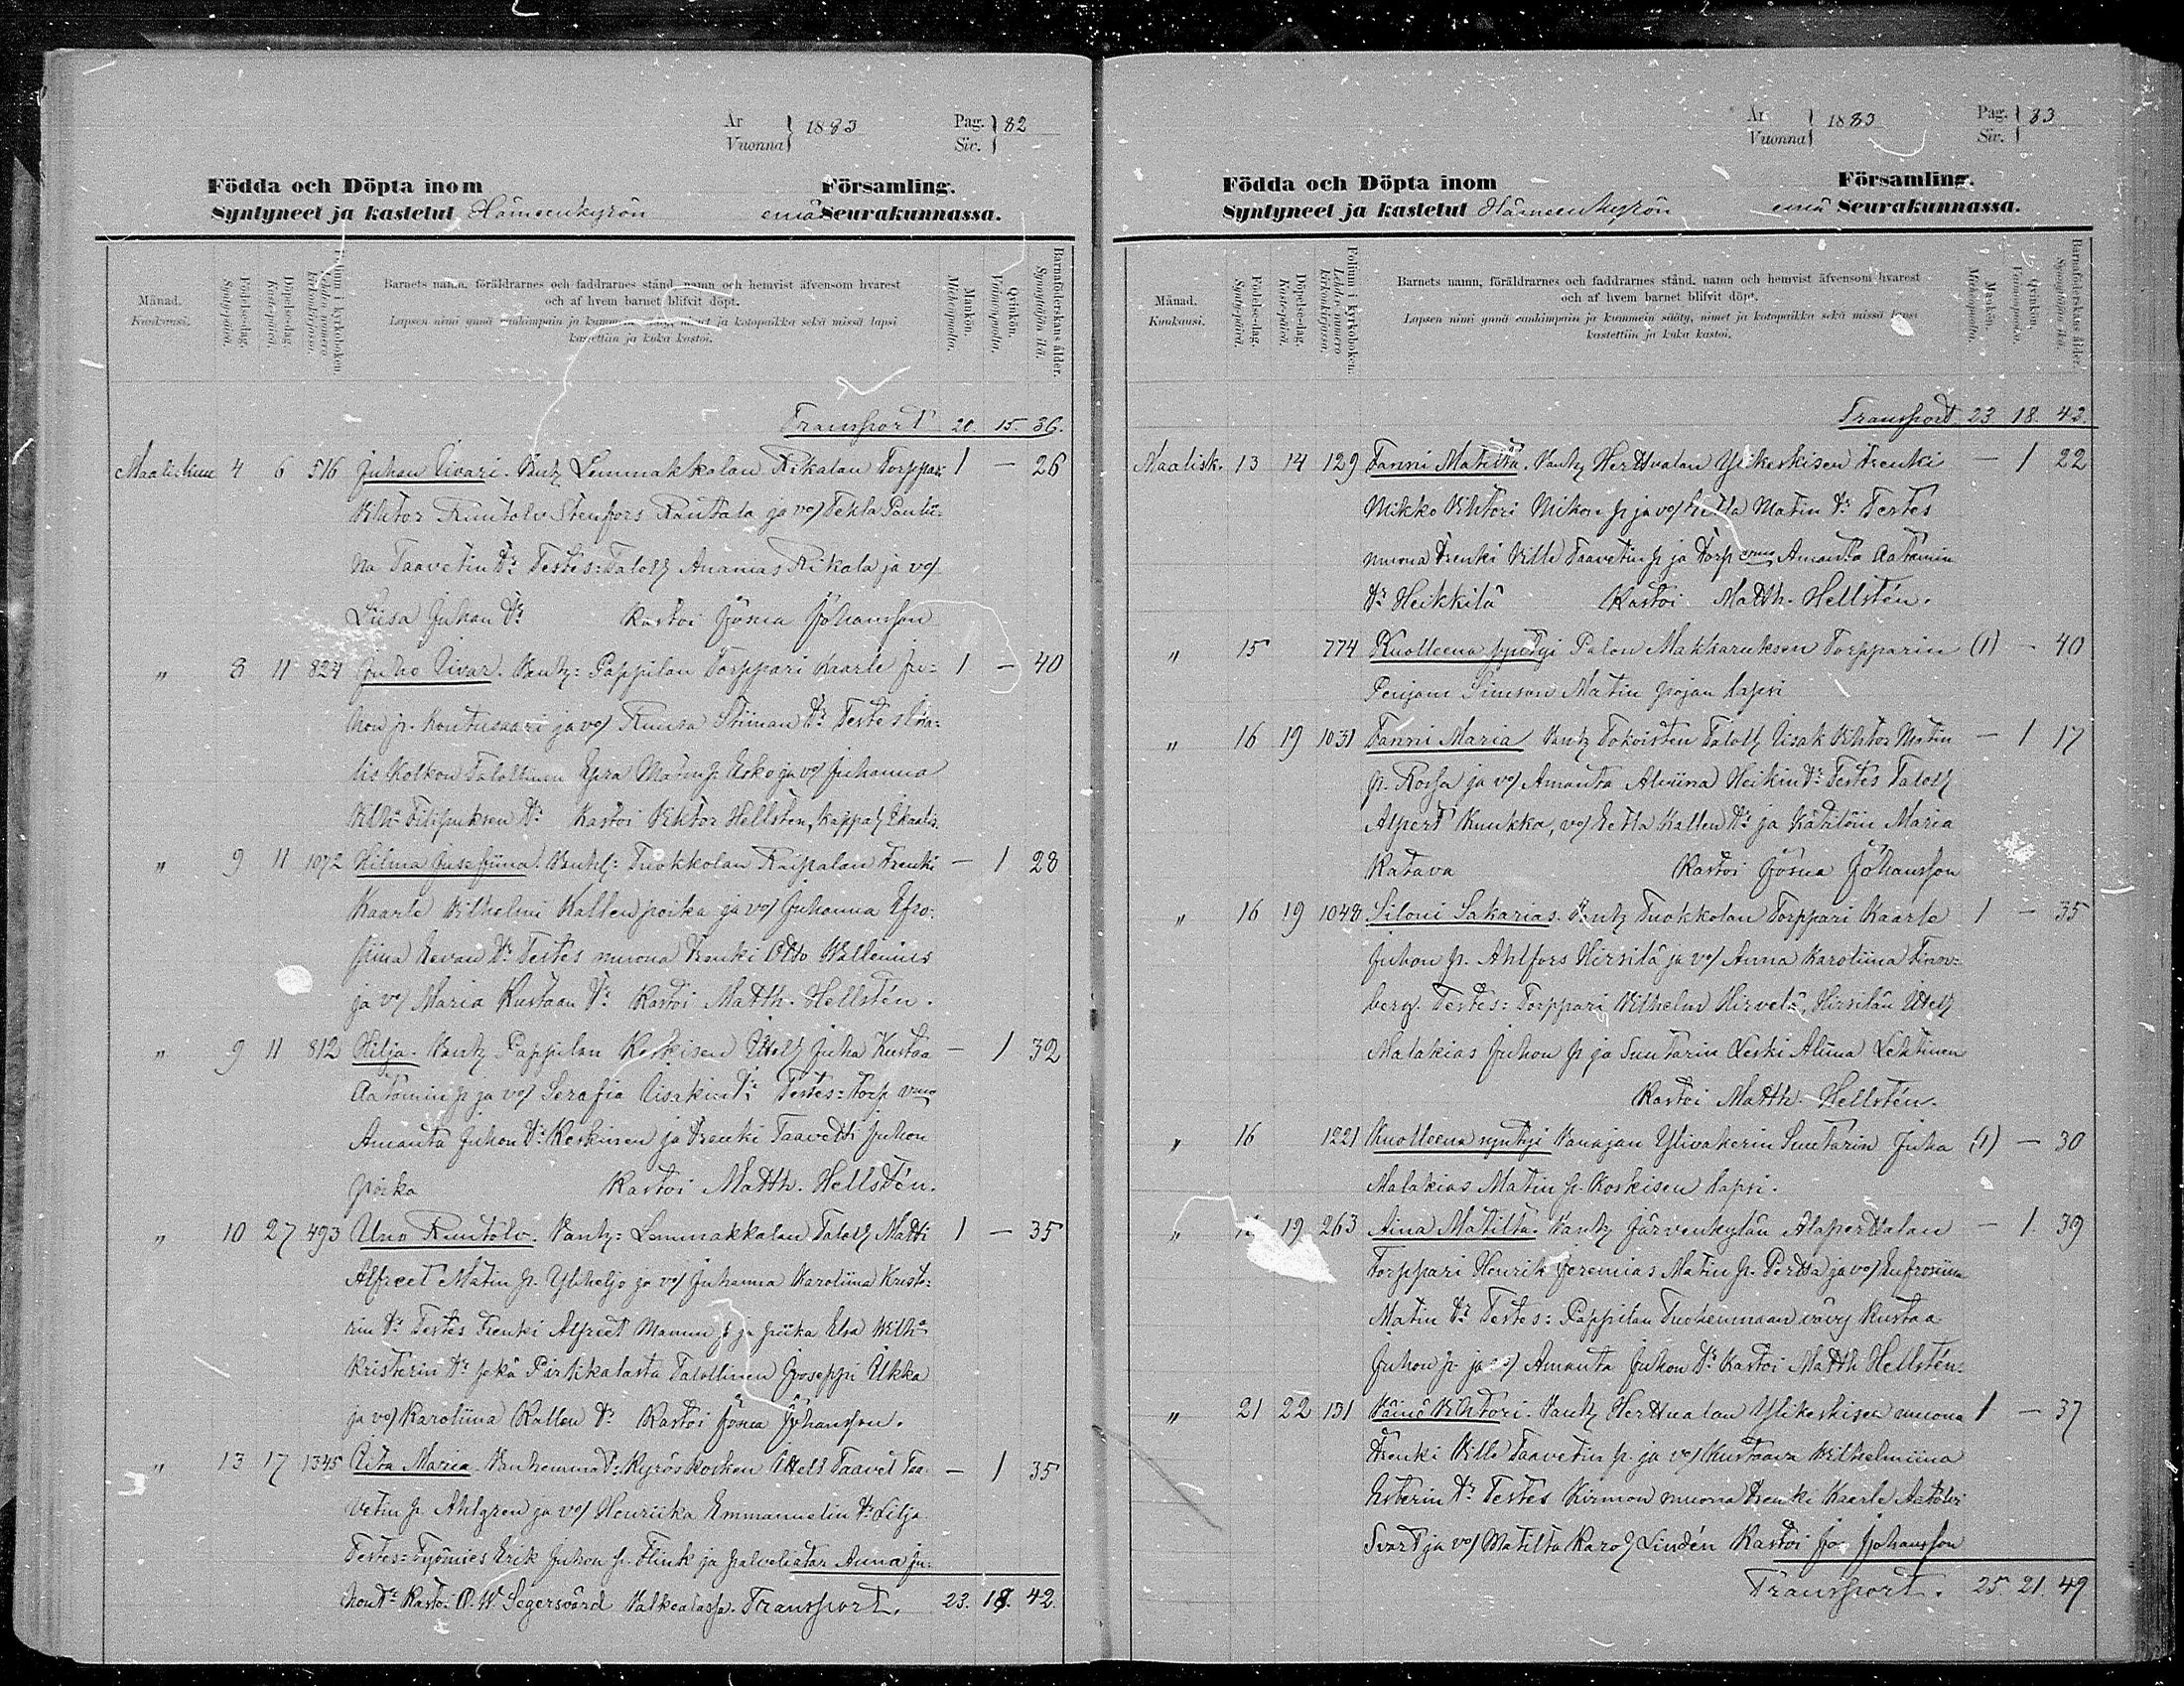 År
Vuonna } 1883 Pag.
Siv. } 82
Födda och Döpta inom Församling.
Syntyneet ja kastetut Hämeenkyrön emä Seurakunnassa.
Månad.
Kuukausi.
Födelse-dag.
Syntypäivä
Döpelse-dag
Kaste-päivä.
Folium i kyrkoboken.
Lehden numero
kirkonkirjassa.
Barnets namn, föräldrarnes och faddrarnes stånd, namn och hemvist äfvensom hvarest
och af hvem barnet blifvit döpt.
Lapsen nimi ynnä vanhimpain ja kummein sääty, nimet ja kotopaikka sekä missä lapsi
kastettiin ja kuka kastoi.
Mankön.
Miehenpuolia.
Qvinkön.
Vaimonpuolia.
Barnaföderskans ålder.
Synnyttäjän ikä.
Transport 20. 15. 36.
Maaliskuu 4 6 516 Juhan Iivari. Vanh Lemmakkalan Rikalan Torppari 1 — 26
Vihtor Ruutolv Stenfors Rantala ja vo/ Tekla Pauli-
na Taavetin tr Testes: Taloll Ananias Rikala ja vo/
Liisa Juhan tr Kastoi Josua Johansson
" 8 11 824 Juho Iivar. Vanh: Pappilan Torppari Kaarle Ju- 1 — 40
hon p. Kontusaari ja vo/ Ruusa Stiinan tr Testes Ikaa-
lis Kolkon Talollinen Esra Matin p. Esko ja vo/ Juhanna
Vilh: Filipuksen tr Kastoi Viktor Hellsten, kappal Ikaalis.
" 9 11 1072 Hilma Jusefiina. Vanh: Tuokkolan Raipalan Trenki — 1 28
Kaarle Vilhelmi Kallen poika ja vo/ Juhanna Efro-
siina Eevan tr Testes muona trenki Otto Wallenius
ja vo/ Maria Kustaan tr Kastoi Matth. Hellstén.
" 9 11 812 Hilja. Vanh Pappilan Koskisen Itsell Juha Kustaa — 1 32
Aatamin p ja vo/ Serafia Iisakin tr Testes: torp vmo
Amanta Juhon tr Koskinen ja trenki Taavetti Juhon
poika Kastoi Matth. Hellstén.
" 10 27 493 Uno Ruutolv. Vanh: Lemmakkalan Taloll Matti 1 — 35
Alfreet Matin p. Yliheljo ja vo/ Juhanna Karoliina Krist-
rin tr Testes Trenki Alfreet Mannun p ja piika Elsa Vilh
Kristerin tr sekä Pirkkalasta Talollinen Jooseppi Ukka
ja vo/ Karoliina Kallen tr Kastoi Josua Johansson.
" 13 17 1345 Aita Maria. Vanhemmat: Kyröskosken Itsell Taavet Taa- — 1 35
vetin p. Ahlgren ja vo/ Henriika Emmanuelin tr Lilja
Testes: Työmies Erik Juhon p. Flink ja palveliatar Anna Ju-
hon tr Kastoi O. W. Segersvärd Valkealassa. Transport. 23. 18. 42.
År
Vuonna } 1883 Pag.
Siv. } 83
Födda och Döpta inom Församling.
Syntyneet ja kastetut Hämeenkyrön emä Seurakunnassa.
Månad.
Kuukausi.
Födelse-dag.
Syntypäivä
Döpelse-dag.
Kaste-päivä.
Folium i kyrkoboken.
Lehden numero
kirkonkirjassa.
Barnets namn, föräldrarnes och faddrarnes stånd, namn och hemvist äfvensom hvarest
och af hvem barnet blifvit döpt.
Lapsen nimi ynnä vanhimpain ja kummein sääty, nimet ja kotopaikka sekä missä lapsi
kastettiin ja kuka kastoi.
Mankön.
Miehenpuolia.
Qvinkön.
Vaimonpuolia.
Barnaföderskans ålder.
Synnyttäjän ikä.
Transport 23 18. 42.
Maalisk. 13 14 129 Fanni Matilta. Vanh Herttualan Ylikeskisen trenki — 1 22
Mikko Vihtori Mikon p ja vo/ Eetla Matin tr Testes
muona trenki Ville Taavetin p ja torp vmo Amanta Aatamin
tr Heikkilä Kastoi Matth. Hellstén.
" 15 774 Kuolleena syntyi Palon Makkaruksen Torpparin (1) — 40
Penjam Simson Matin pojan lapsi
" 16 19 1031 Fanni Maria Vanh Tokoisten Taloll Iisak Vihtor Matin — 1 17
p. Rossa ja vo/ Amanta Alviina Heikin tr Testes Taloll
Alpert Kuukka, vo/ Eetla Kallen tr ja Kätilöin Maria
Katava Kastoi Josua Johansson
" 16 19 1048 Siloni Sakarias. Vanh Tuokkolan Torppari Kaarle 1 — 35
Juhon p. Ahlfors Hirsilä ja vo/ Anna Karoliina Finn-
berg. Testes: Torppari Vilhelm Hirvelä, Hirsilän Itsell
Malakias Juhon p ja Suutarin Leski Aliina Lehtinen
Kastoi Matth. Hellstén.
" 16 1221 Kuolleena syntyi Vanajan Ylivakerin Suutarin Juha (1) — 30
Malakias Matin p. Koskisen lapsi.
" 19 263 Aina Matilta. Vanh Järvenkylän Alaperttalan — 1 39
Torppari Henrik Jeremias Matin p. Pertta ja vo/ Eufrosiina
Matin tr Testes: Pappilan Tuohenmaan vävy Kustaa
Juhon p ja vo/ Amanta Juhon tr Kastoi Matth Hellstén.
" 21 22 131 Väinö Vihtori. Vanh Herttualan Ylikeskisen muona 1 — 37
trenki Ville Taavetin p. ja vo/ Kustaava Vilhelmiina
Esterin tr Testes Kirmon muona trenki Kaarle Aatolvi
Svart ja vo/ Matilta Karol Lindén Kastoi Jos Johansson
Transport. 25. 21. 49